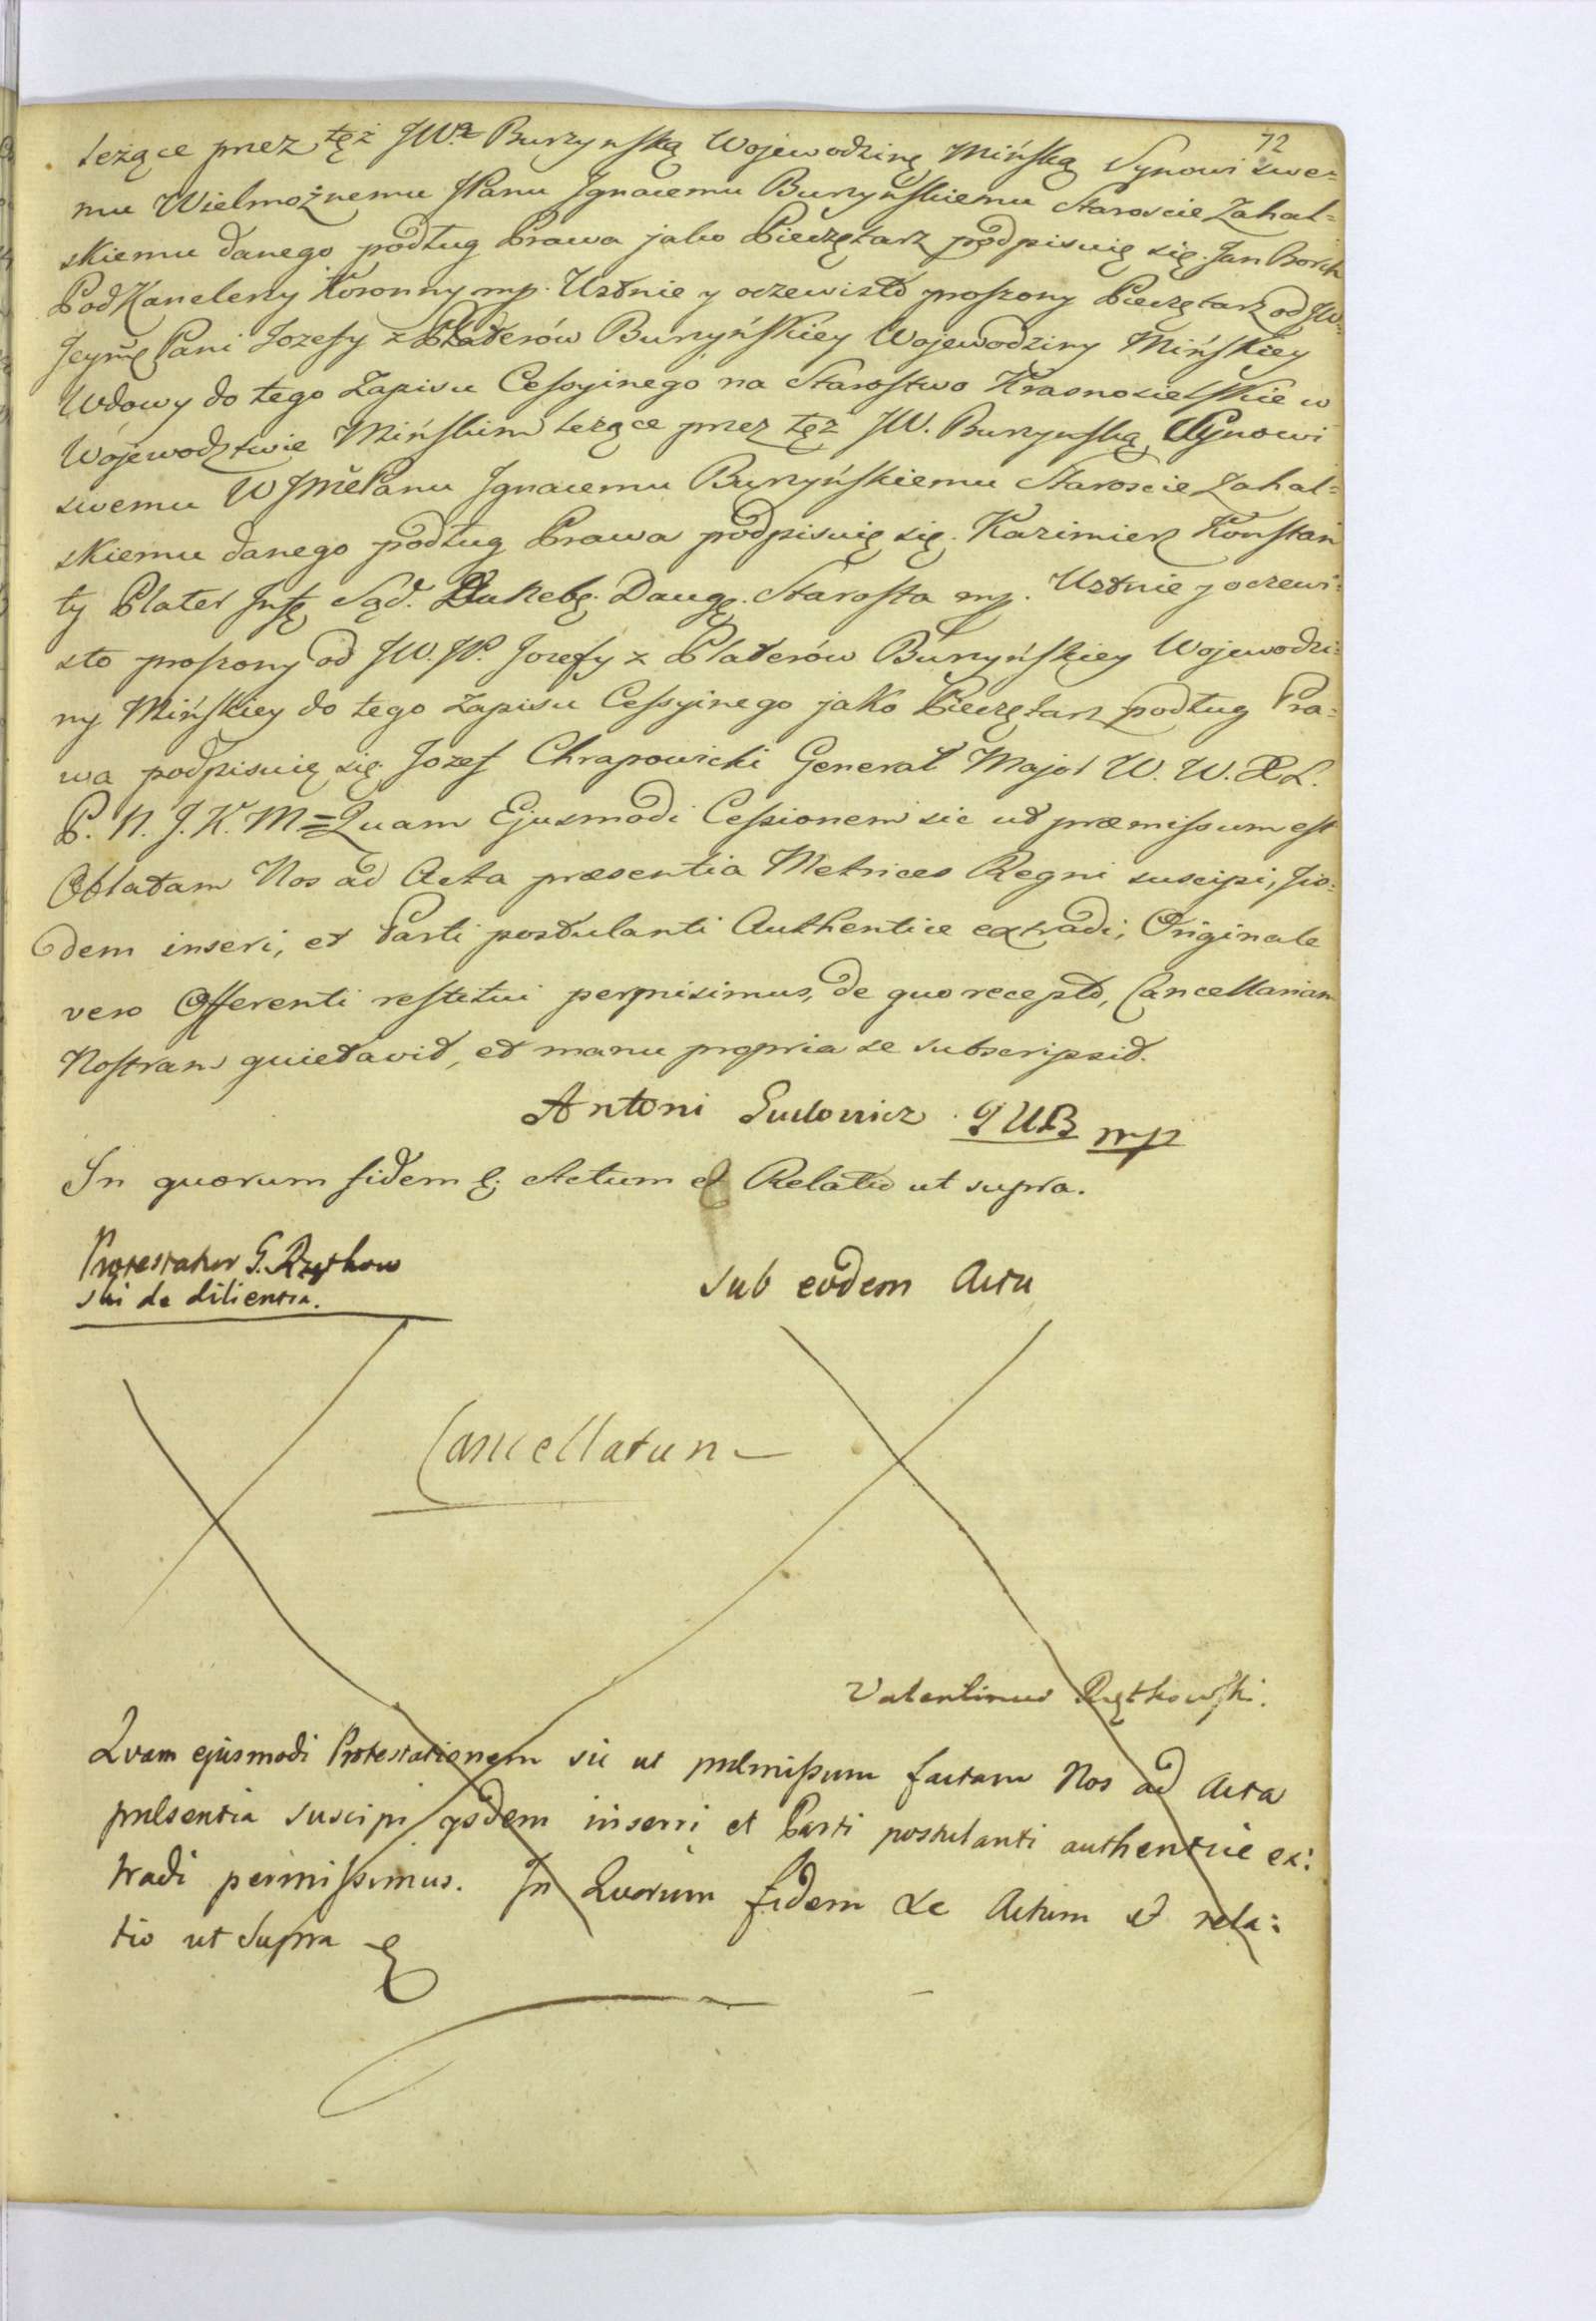 72
leżące przez tęż JWą Burzynską Wojewodzinę Mińską Synowi swe=
mu Wielmożnemu JPanu Ignacemu Burzyńskiemu Staroscie Zahal=
skiemu danego podług Prawa jako Pieczętarz podpisuię się. Jan Borch
PodKanclerzy Koronny mp. Ustnie y oczewisto proszony Pieczętarz od JW=
Jeymę Pani Jozefy z Platerów Burzyńskiey Wojewodziny Mińskiey
Wdowy do tego Zapisu Cessyinego na Starostwo Krasnosielskie w
Wojewodztwie Mińskim leżące przez tęż JW. Burzynską Synowi
swemu W JmćPanu Ignacemu Burzyńskiemu Staroscie Zahal=
skiemu danego podług Prawa podpisuię się. Kazimierz Konstan
ty Plater Sąd. Starosta mp. Ustnie y oczewi=
sto proszony od JW. JP. Jozefy z Platerów Burzyńskiey Wojewodzi=
ny Mińskiey do tego Zapisu Cessyinego jako Pieczętarz podług Pra=
wa podpisuię się. Jozef Chrapowicki Generał Major W. W. X L.
P. N. J. K. M. = Quam Ejusmodi Cessionem sic ut præmissum est
Oblatam Nos ad Acta præsentia Metrices Regni suscipi, Iis=
dem inseri, et Parti postulanti Authentice extradi, Originale
vero Offerenti restitui permisimus, de quo recepto, Cancellariam
Nostram quietavit, et manu propria se subscripsit.
Antoni mp
In quorum fidem &. Actum et Relatio ut supra.
Protestatur G. Rętkow
ski de dilientia.
sub eodem Actu
Cancellatum
Valentinus Rętkowski.
Quam ejusmodi Protestationem sic ut præmissum factam Nos ad Acta
præsentia suscipi ysdem inseri et Parti postulanti authentice ex:
tradi permissimus. In Quorum fidem &c Actum et rela:
tio ut Supra